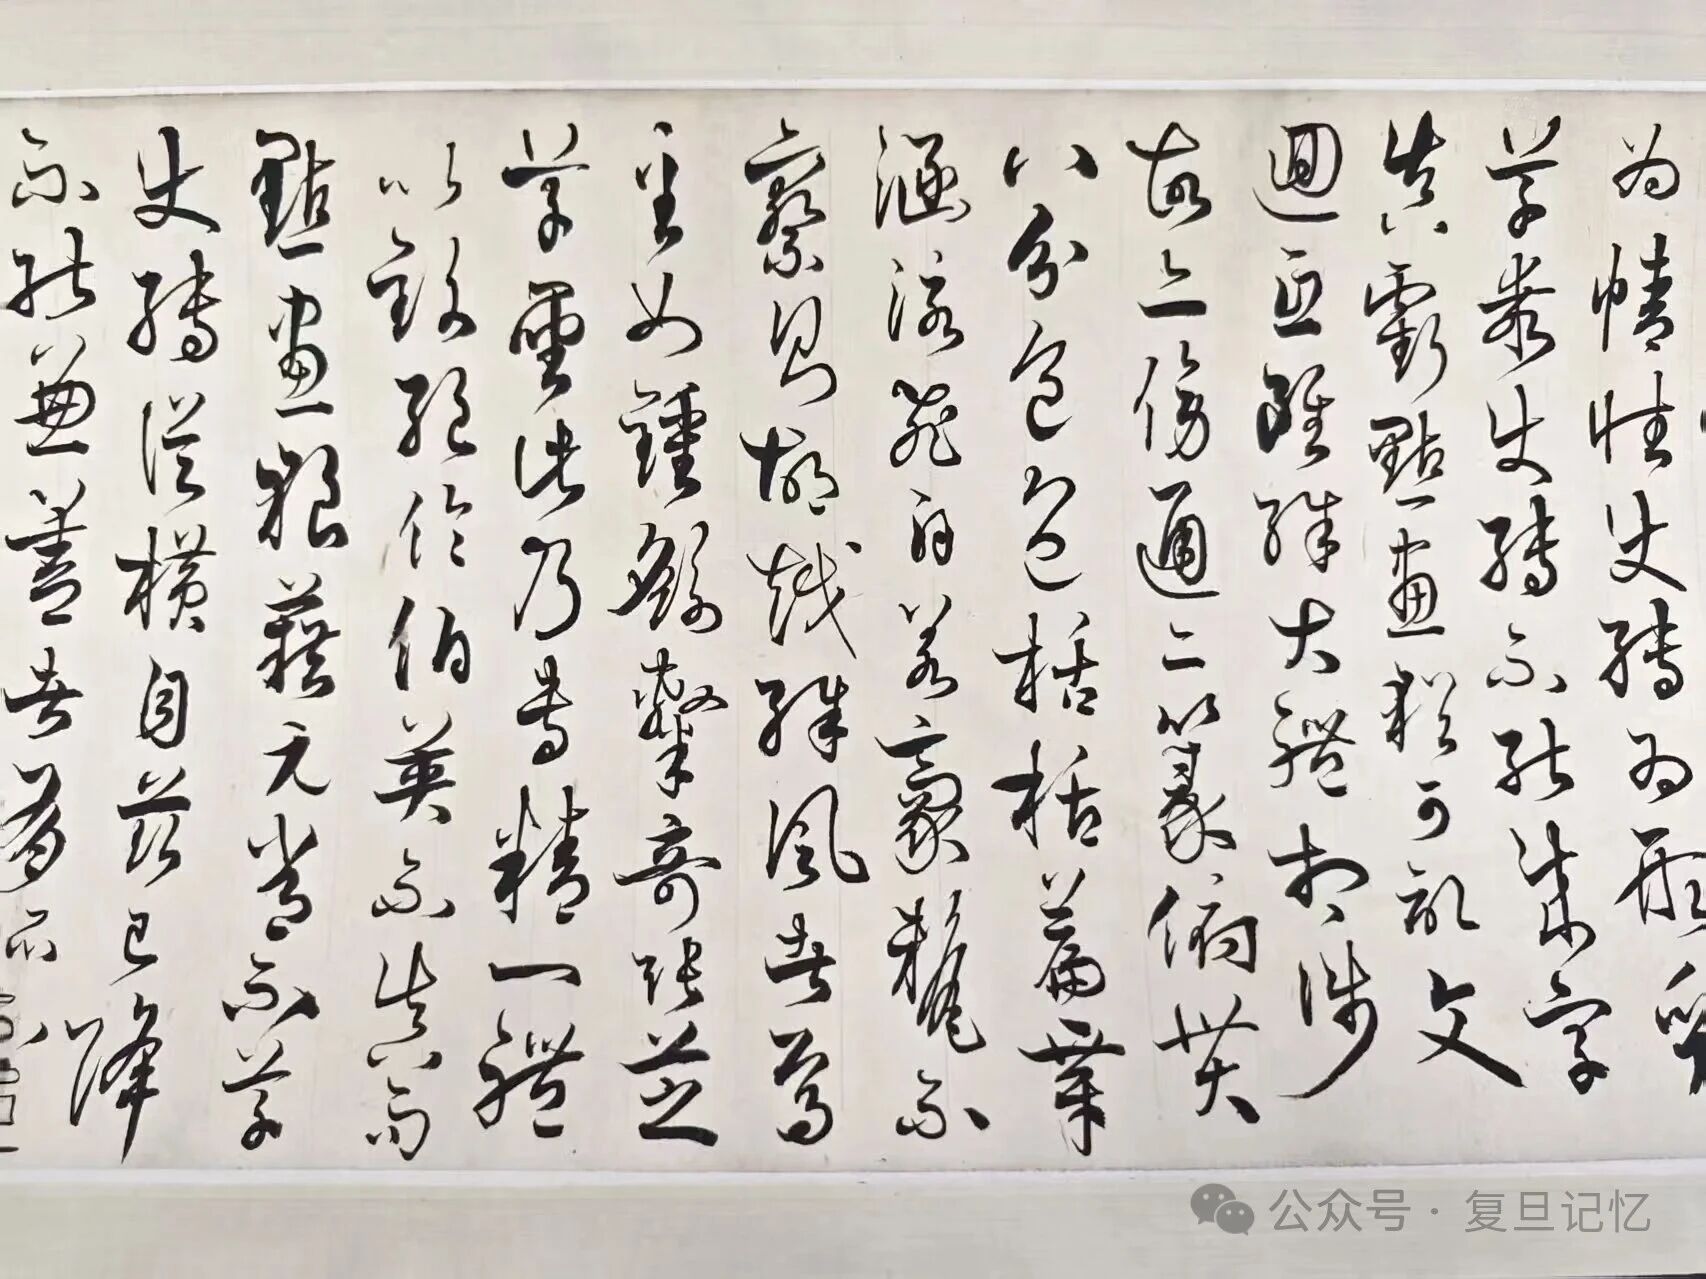 為情性使轉為形質
草乖使轉不能成字
真虧點畫猶可記文
迴互雖殊大體相涉
故亦傍通二篆俯貫
八分包包括括篇章
涵泳飛白若豪氂不
察則胡越殊風者焉
至如鍾繇隸奇張芝
草聖此乃專精一體
以致絕倫伯英不真而
點畫狼藉元常不草
使轉縱橫自茲已降
不能兼善者有所不
公众号·复旦记忆